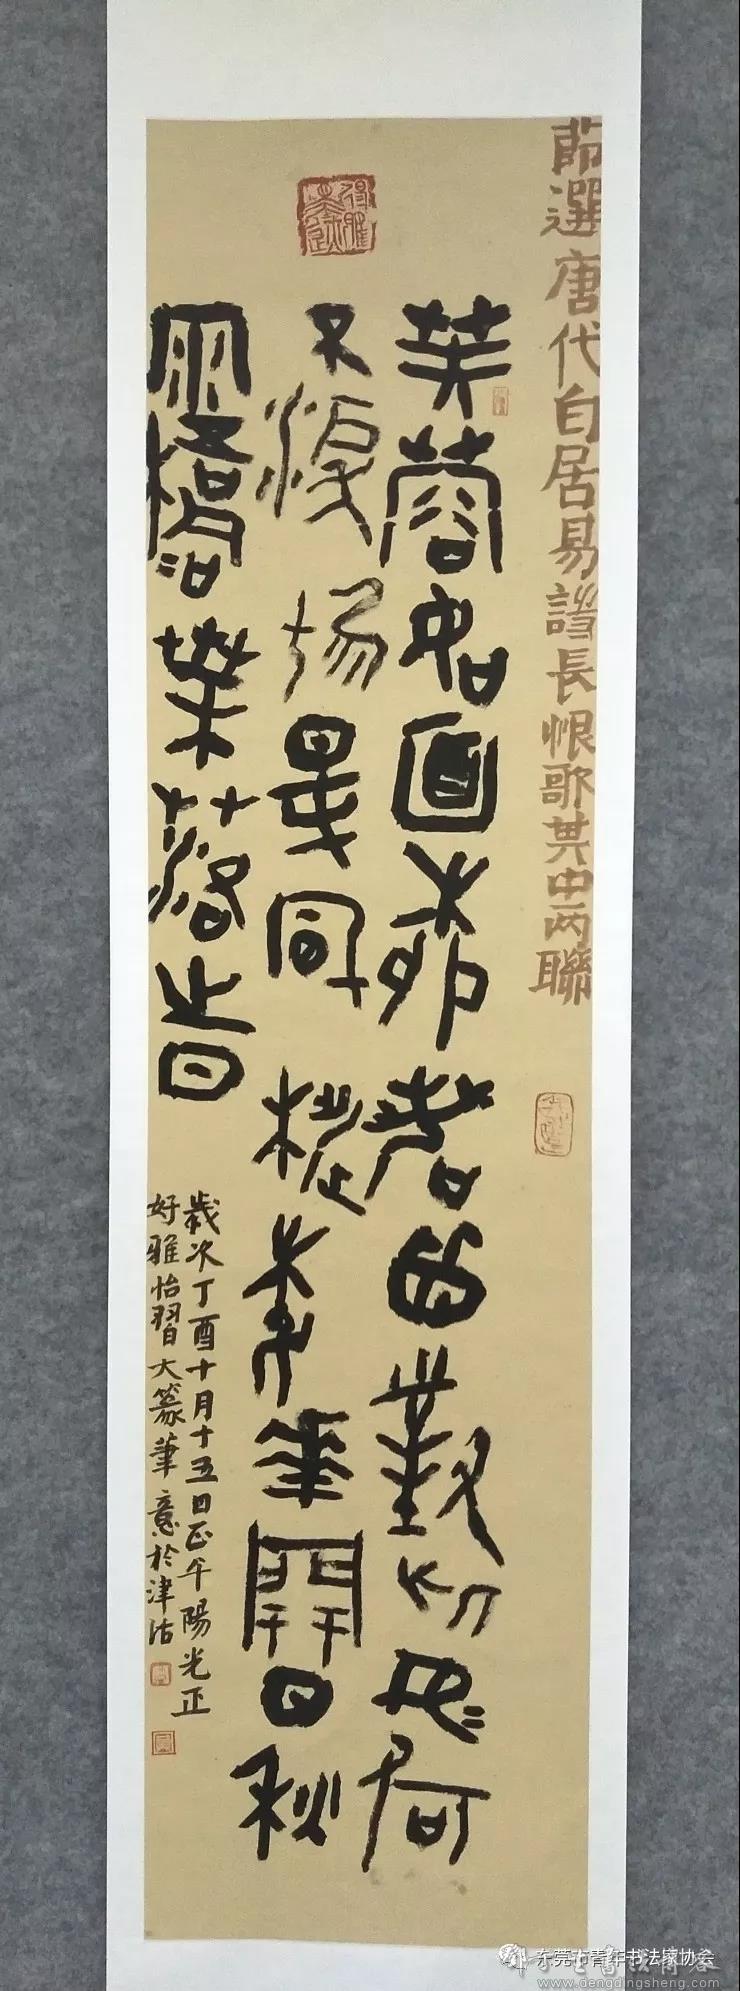 節選唐代白居易詩長恨歌其中两聯
芙蓉如面柳如眉對此如何
不淚垂春風桃李花開日秋
雨梧桐葉落時
歲次丁酉十月十五日正午陽光正
好雅怡習大篆筆意於津沽
东莞市青年书法家协会
www.dengdingsheng.com